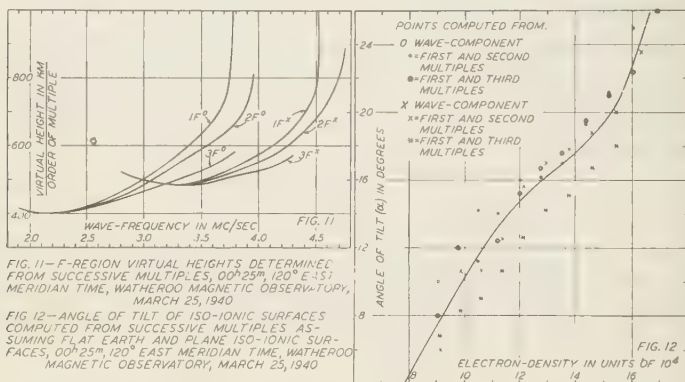 800
600
400
VIRTUAL HEIGHT IN KM
ORDER OF MULTIPLE
1F⁰
2F⁰
3F⁰
1Fˣ
2Fˣ
3Fˣ
2.0 2.5 3.0 3.5 4.0 4.5
WAVE-FREQUENCY IN MC/SEC
FIG. 11
FIG. 11—F-REGION VIRTUAL HEIGHTS DETERMINED
FROM SUCCESSIVE MULTIPLES, 00ʰ25ᵐ, 120° EAST
MERIDIAN TIME, WATHEROO MAGNETIC OBSERVATORY,
MARCH 25, 1940
FIG 12—ANGLE OF TILT OF ISO-IONIC SURFACES
COMPUTED FROM SUCCESSIVE MULTIPLES AS-
SUMING FLAT EARTH AND PLANE ISO-IONIC SUR-
FACES, 00ʰ25ᵐ, 120° EAST MERIDIAN TIME, WATHEROO
MAGNETIC OBSERVATORY, MARCH 25, 1940
POINTS COMPUTED FROM
O WAVE-COMPONENT
=FIRST AND SECOND
MULTIPLES
=FIRST AND THIRD
MULTIPLES
X WAVE-COMPONENT
=FIRST AND SECOND
MULTIPLES
=FIRST AND THIRD
MULTIPLES
24
20
16
12
8
ANGLE OF TILT (α) IN DEGREES
8 10 12 14 16
ELECTRON-DENSITY IN UNITS OF 10⁴
FIG. 12